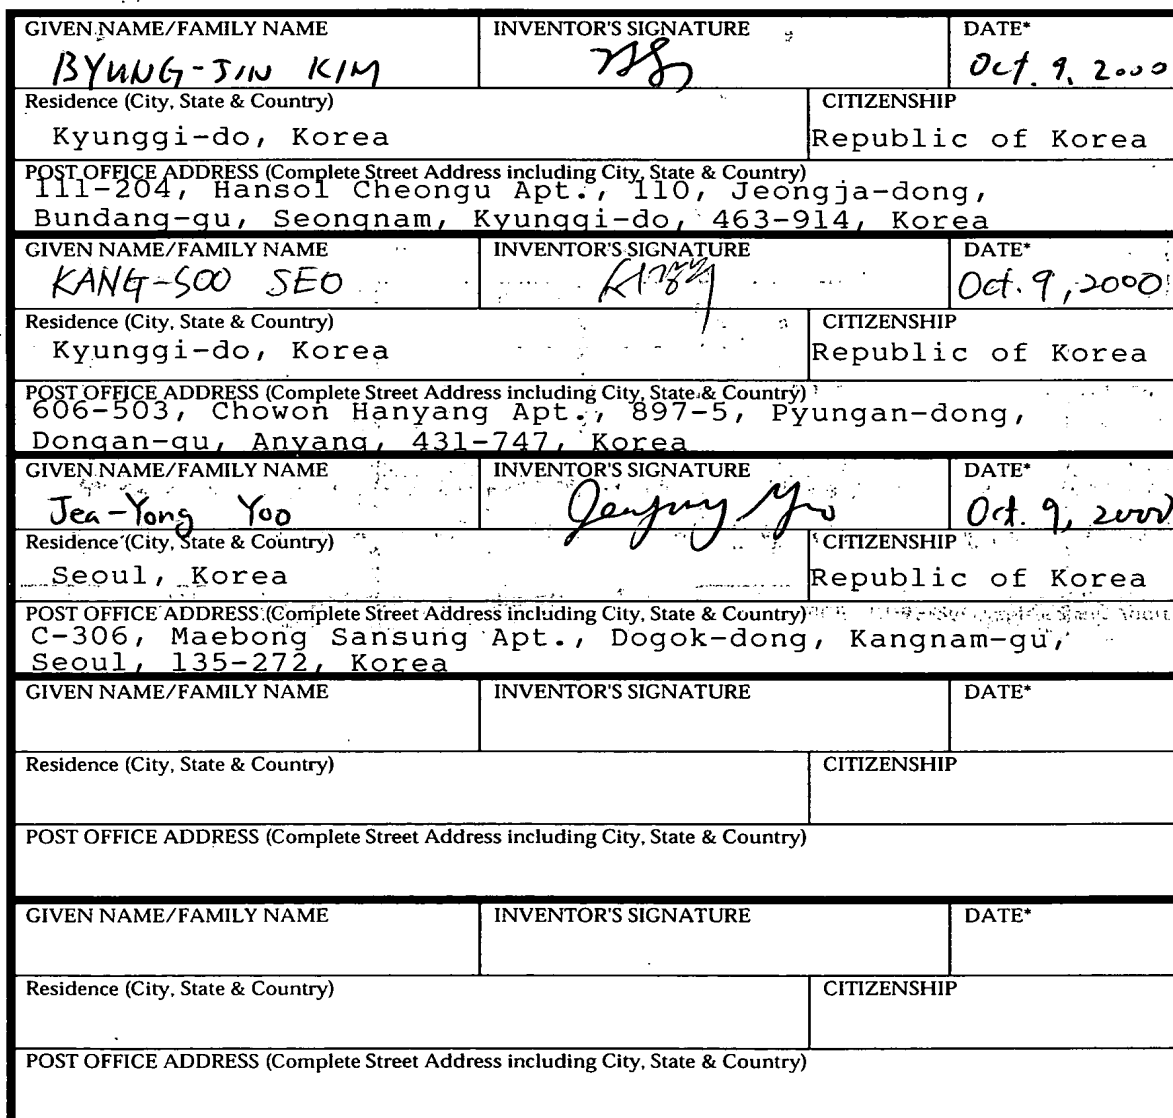 GIVEN NAME/FAMILY NAME INVENTOR'S SIGNATURE DATE*
BYUNG-JIN KIM Oct. 9, 2000
Residence (City, State & Country) CITIZENSHIP
Kyunggi-do, Korea Republic of Korea
POST OFFICE ADDRESS (Complete Street Address including City, State & Country)
111-204, Hansol Cheongu Apt., 110, Jeongja-dong,
Bundang-gu, Seongnam, Kyunggi-do, 463-914, Korea
GIVEN NAME/FAMILY NAME INVENTOR'S SIGNATURE DATE*
KANG-SOO SEO Oct. 9, 2000
Residence (City, State & Country) CITIZENSHIP
Kyunggi-do, Korea Republic of Korea
POST OFFICE ADDRESS (Complete Street Address including City, State & Country)
606-503, Chowon Hanyang Apt., 897-5, Pyungan-dong,
Dongan-gu, Anyang, 431-747, Korea
GIVEN NAME/FAMILY NAME INVENTOR'S SIGNATURE DATE*
Jea-Yong Yoo Oct. 9, 2000
Residence (City, State & Country) CITIZENSHIP
Seoul, Korea Republic of Korea
POST OFFICE ADDRESS (Complete Street Address including City, State & Country)
C-306, Maebong Sansung Apt., Dogok-dong, Kangnam-gu,
Seoul, 135-272, Korea
GIVEN NAME/FAMILY NAME INVENTOR'S SIGNATURE DATE*
Residence (City, State & Country) CITIZENSHIP
POST OFFICE ADDRESS (Complete Street Address including City, State & Country)
GIVEN NAME/FAMILY NAME INVENTOR'S SIGNATURE DATE*
Residence (City, State & Country) CITIZENSHIP
POST OFFICE ADDRESS (Complete Street Address including City, State & Country)